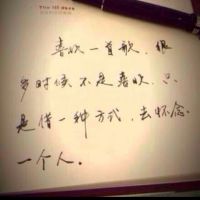 喜欢一首歌，很
多时候不是喜欢，只
是借一种方式，去怀念
一个人．